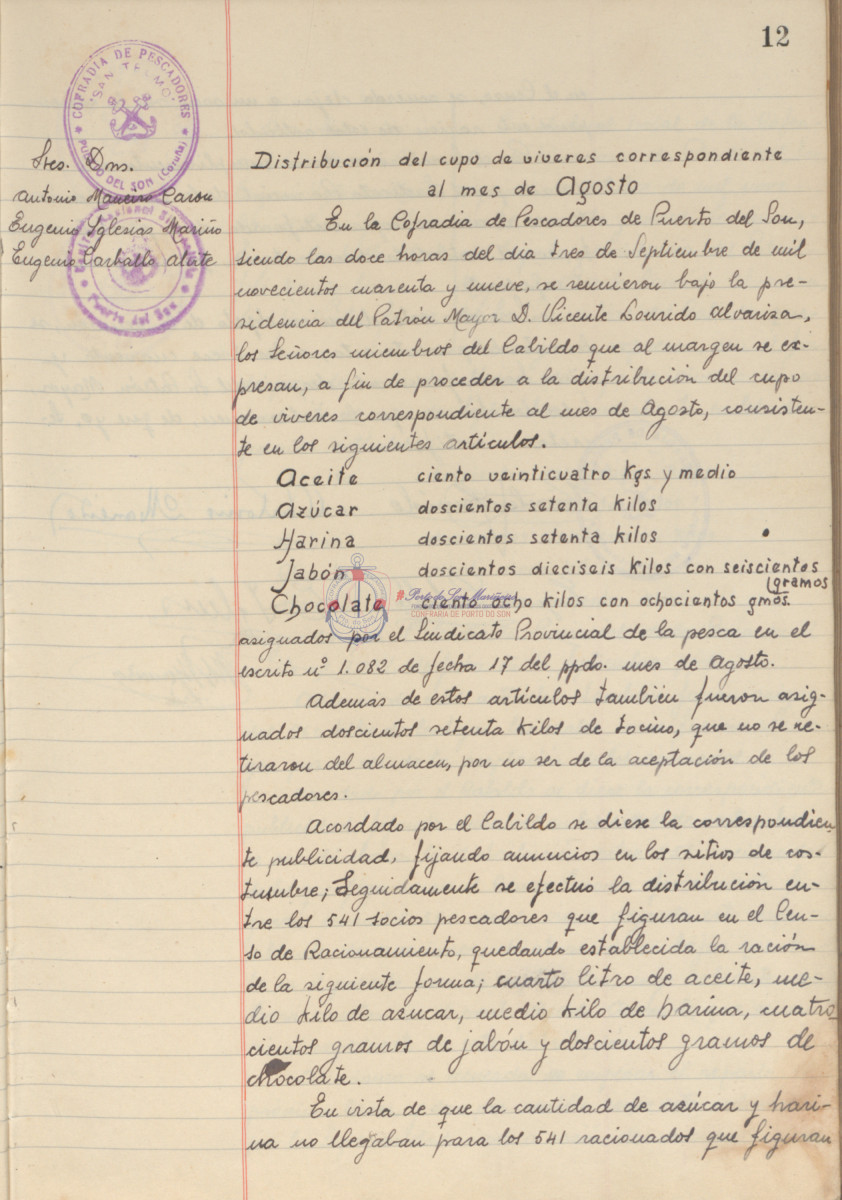 12
COFRADIA DE PESCADORES
"SAN TELMO"
PUERTO DEL SON (Coruña)
Sres. Dns.
Antonio Maneiro Carou
Eugenio Iglesias Mariño
Eugenio Carballo Alvite
Puerto del Son
Distribución del cupo de viveres correspondiente
al mes de Agosto
En la Cofradia de Pescadores de Puerto del Son,
siendo las doce horas del dia tres de Septiembre de mil
novecientos cuarenta y nueve, se reunieron bajo la pre-
sidencia del Patrón Mayor D. Vicente Lourido Alvariza,
los Señores miembros del Cabildo que al margen se ex-
presan, a fin de proceder a la distribución del cupo
de viveres correspondiente al mes de Agosto, consisten-
te en los siguientes artículos.
Aceite ciento veinticuatro Kgs y medio
Azúcar doscientos setenta kilos
Harina doscientos setenta kilos
Jabón doscientos dieciseis kilos con seiscientos
gramos
Chocolate ciento ocho kilos con ochocientos gmos.
Porto do Son
CONFRARIA DE PORTO DO SON
asignados por el Sindicato Provincial de la pesca en el
escrito nº 1.082 de fecha 17 del ppdo. mes de Agosto.
Además de estos artículos también fueron asig-
nados doscientos setenta kilos de tocino, que no se re-
tiraron del almacen, por no ser de la aceptación de los
pescadores.
Acordado por el Cabildo se diese la correspondien
te publicidad, fijando anuncios en los sitios de cos-
tumbre; Seguidamente se efectuó la distribución en-
tre los 541 socios pescadores que figuran en el Cen-
so de Racionamiento, quedando establecida la ración
de la siguiente forma; cuarto litro de aceite, me-
dio kilo de azucar, medio kilo de harina, cuatro
cientos gramos de jabón y doscientos gramos de
chocolate.
En vista de que la cantidad de azúcar y hari-
na no llegaban para los 541 racionados que figuran